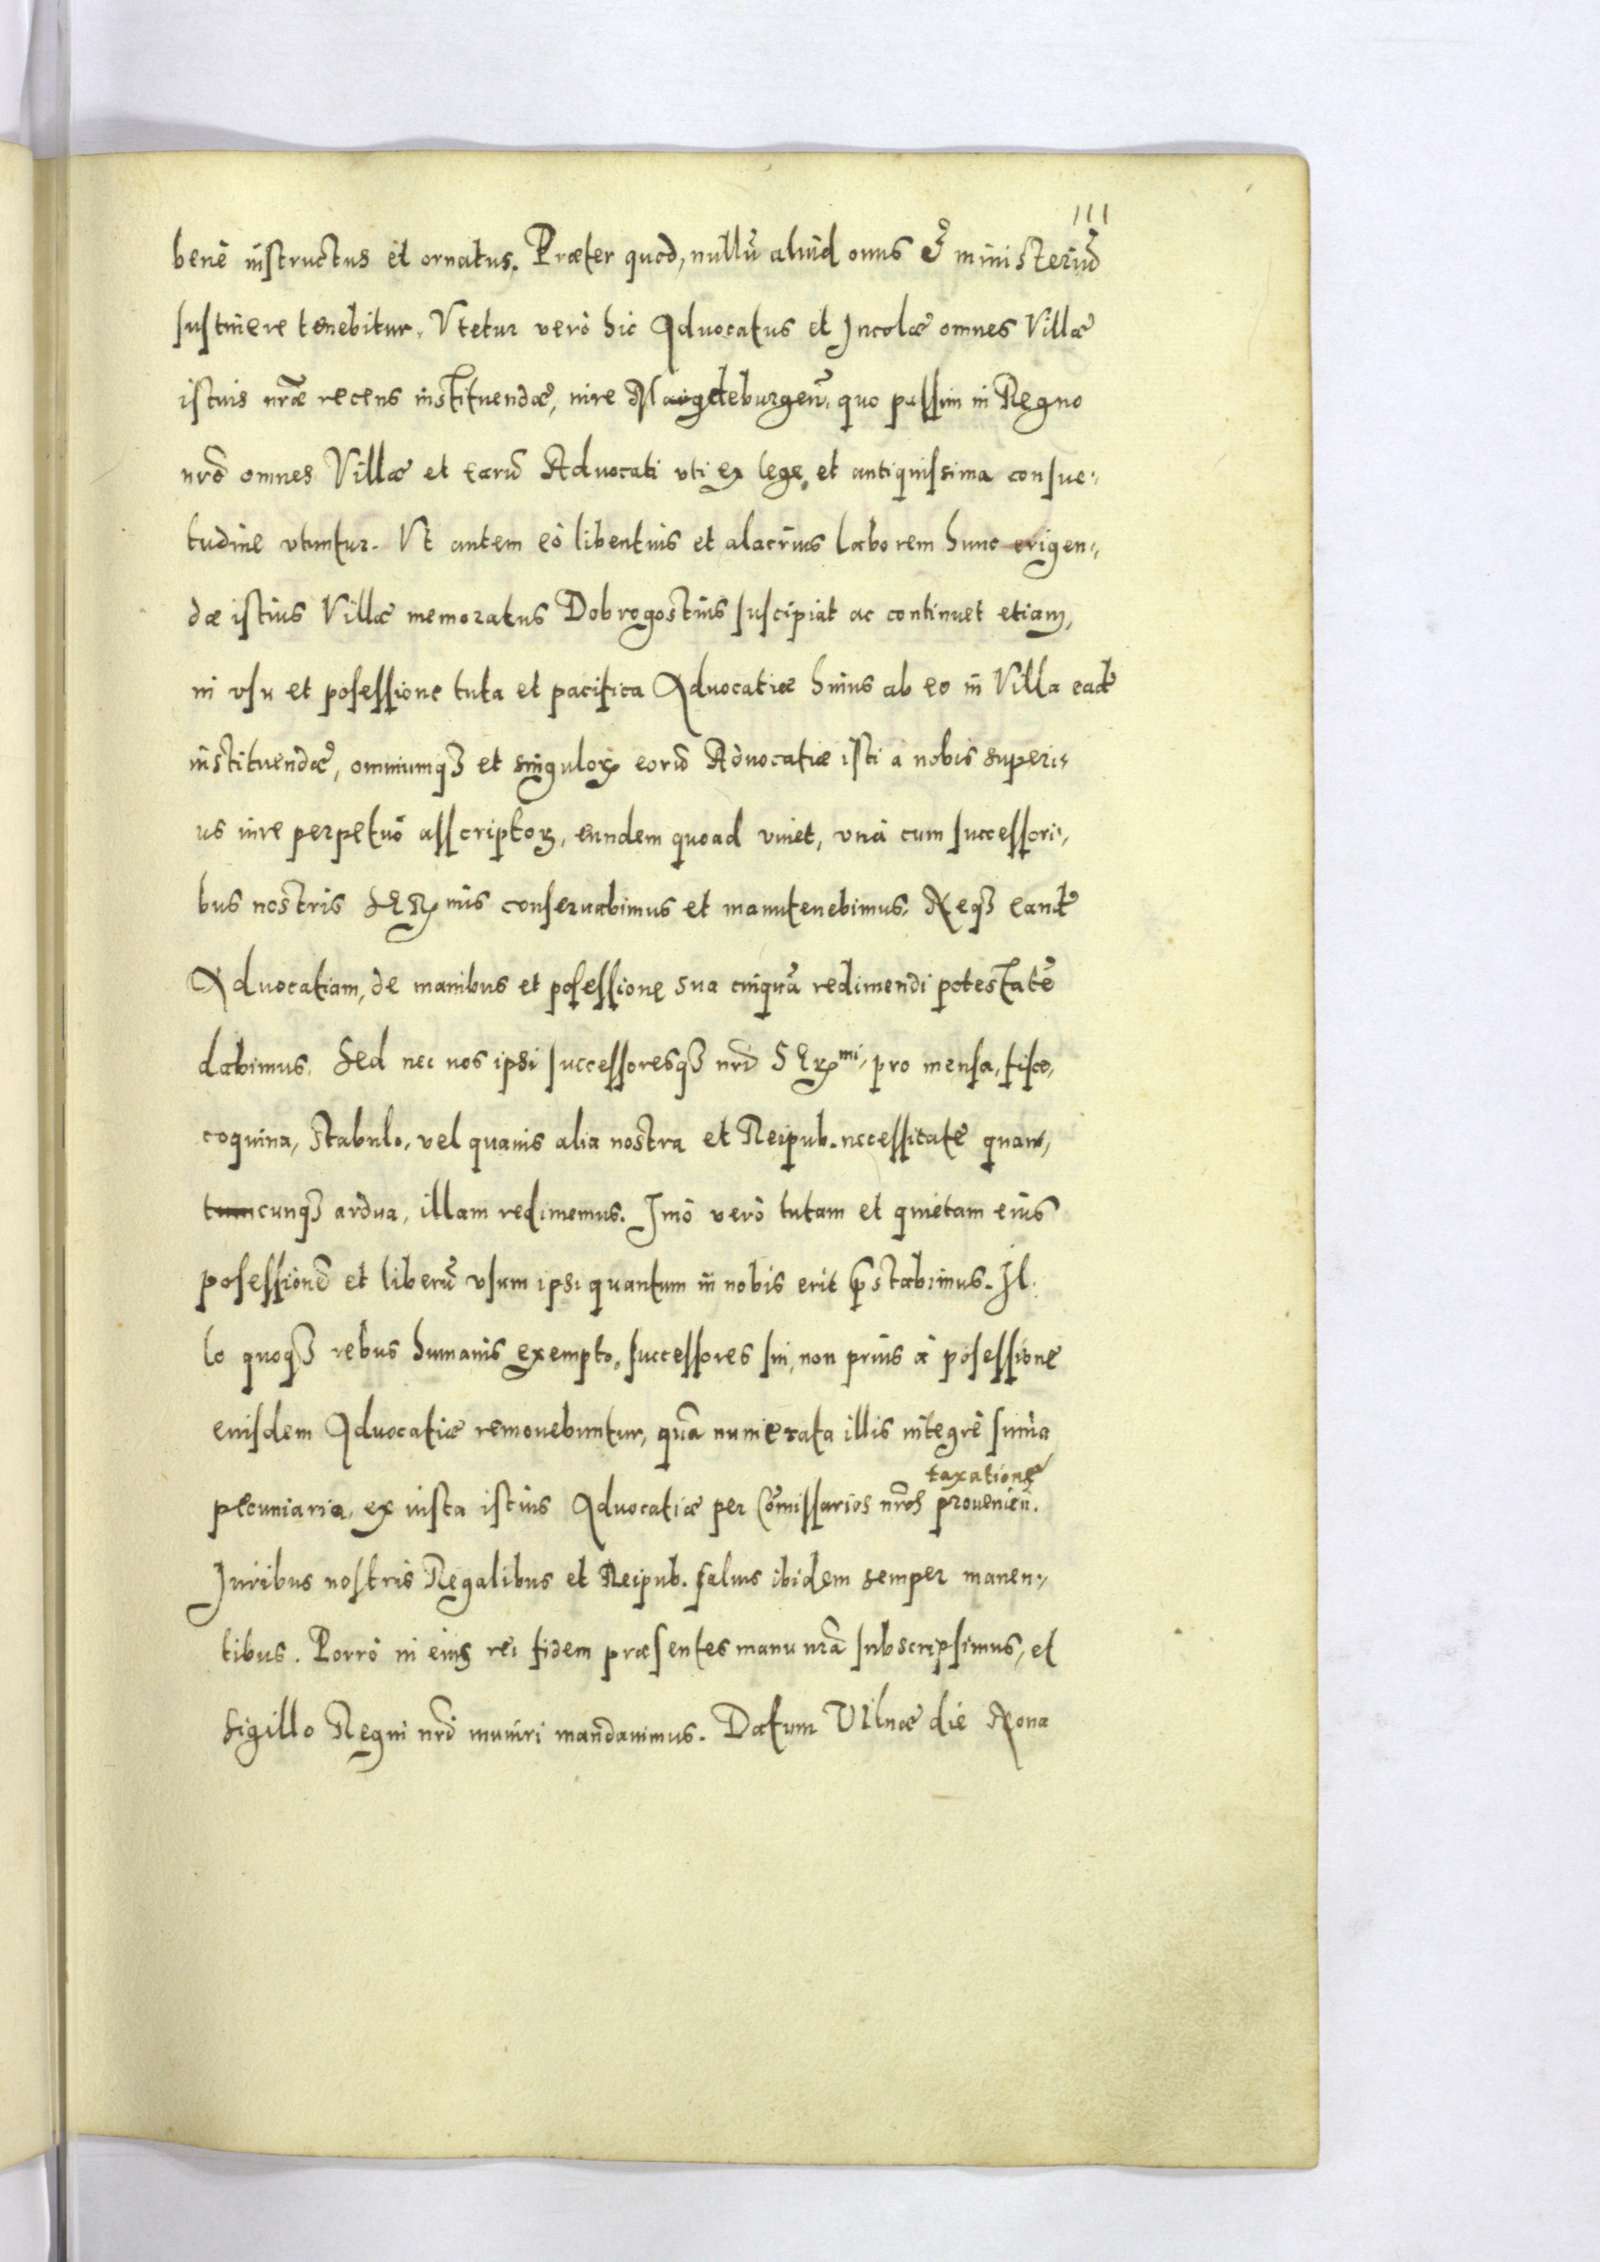 111
benè instructus et ornatus. Præter quod, nullũ aliud onus et ministeriũ
sustinere tenebitur. Vtetur verò hic Aduocatus et Incolæ omnes Villæ
istius nr̃æ recens instituendæ, iure Maigdeburgen̄. quo passim in Regno
nrõ omnes Villæ et earũ Aduocati vti ex lege, et antiquissima consue-
tudine vtuntur. Vt autem eò libentius et alacrius laborem hunc erigen-
dæ istius Villæ memoratus Dobrogostius suscipiat ac continuet etiam,
in vsu et posessione tuta et pacifica Aduocatiæ huius ab eo in Villa ead̃
instituendæ, omniumqȝ et singulorꝝ eorũ Aduocatiæ isti à nobis superi-
us iure perpetuò asscriptorꝝ, eundem quoad viuet, vnà cum successori-
bus nostris conseruabimus et manutenebimus. Neqȝ eand̃
Aduocatiam, de manibus et posessione sua cuiquã redimendi potestatẽ
dabimus. Sed nec nos ipsi successoresqȝ nrĩ pro mensa, fisco,
coquina, stabulo, vel quauis alia nostra et Reipub. necessitate quan-
tumcunqȝ ardua, illam redimemus. Imò verò tutam et quietam eius
posessionẽ et liberũ vsum ipsi quantum in nobis erit p̃stabimus. Il-
lo quoqȝ rebus humanis exempto, successores sui, non prius à posessione
eiusdem Aduocatiæ remouebuntur, quã numerata illis integrè sum̃a
taxatione
pecuniaria, ex iusta istius Aduocatiæ per Com̃issarios nr̃os prouenien̄.
Iuribus nostris Regalibus et Reipub. saluis ibidem semper manen-
tibus. Porrò in eius rei fidem præsentes manu nr̃a subscripsimus, et
sigillo Regni nrĩ muniri mandauimus. Datum Vilnæ die Nona